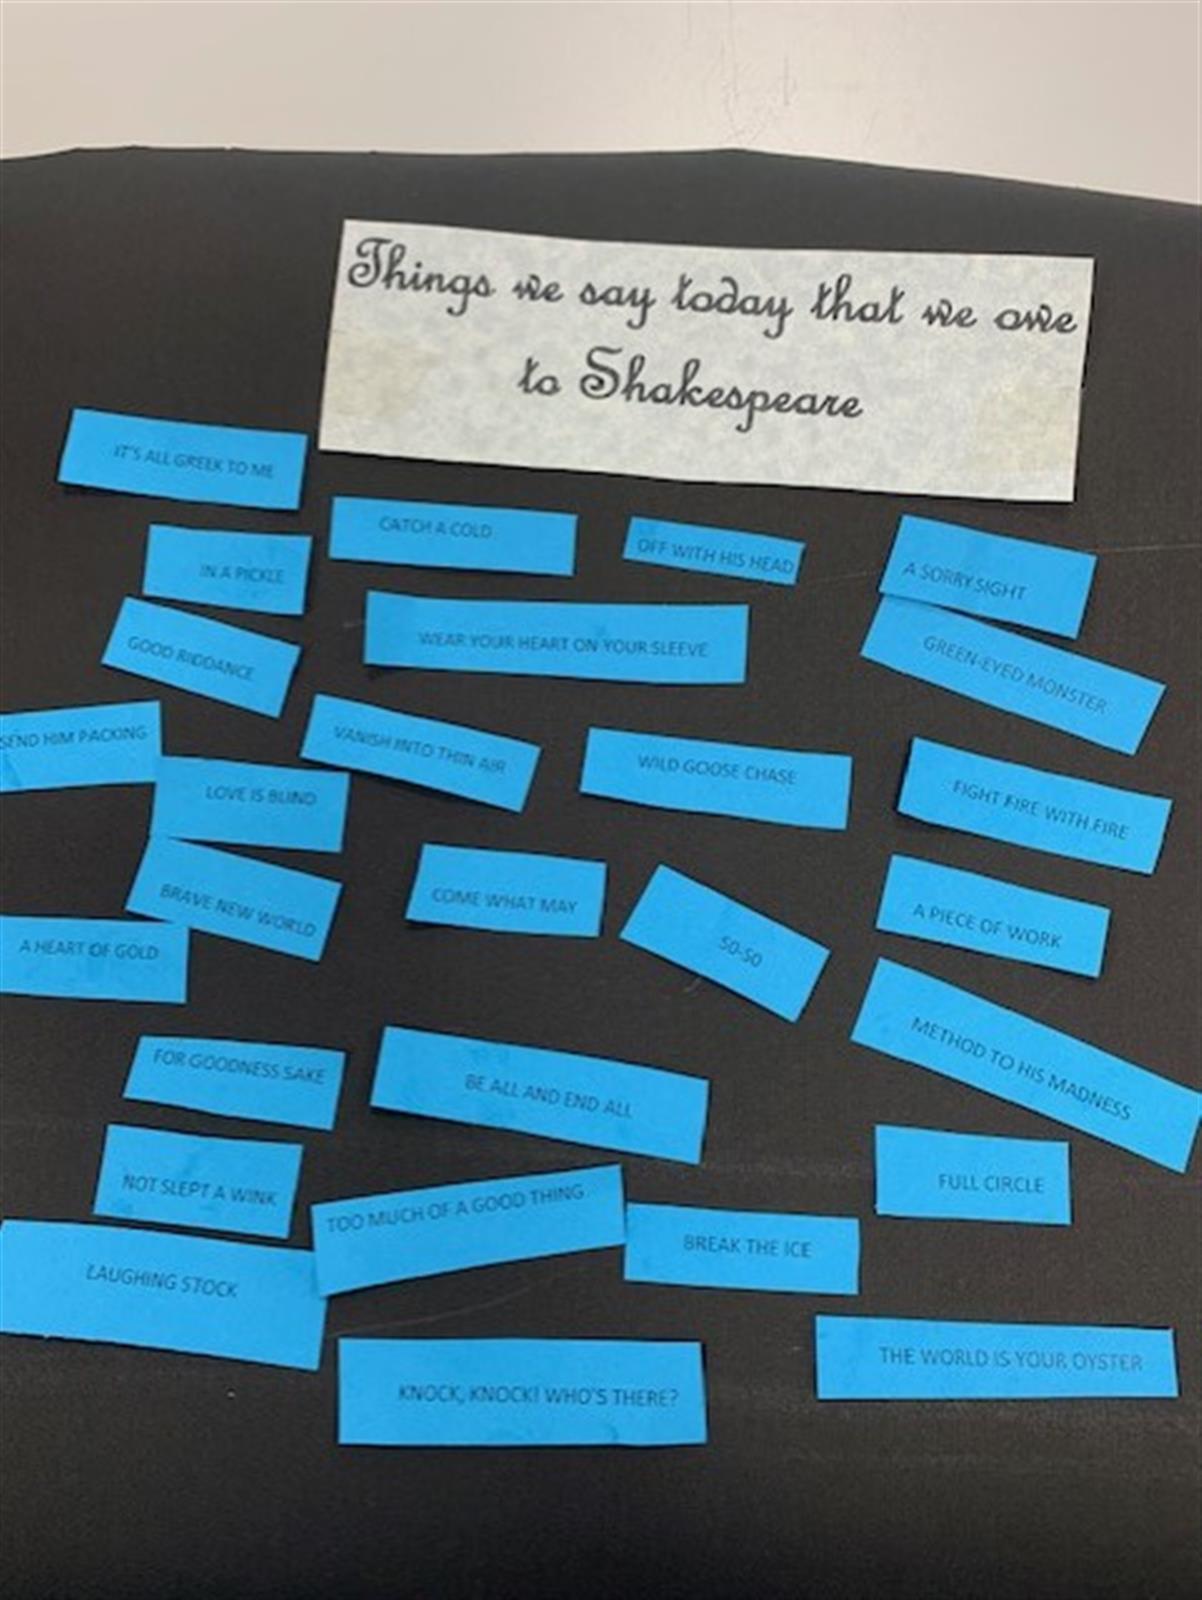 Things we say today that we owe
to Shakespeare
IT'S ALL GREEK TO ME
CATCH A COLD
OFF WITH HIS HEAD
A SORRY SIGHT
IN A PICKLE
WEAR YOUR HEART ON YOUR SLEEVE
GREEN-EYED MONSTER
GOOD RIDDANCE
SEND HIM PACKING
VANISH INTO THIN AIR
WILD GOOSE CHASE
FIGHT FIRE WITH FIRE
LOVE IS BLIND
BRAVE NEW WORLD
COME WHAT MAY
SO-SO
A PIECE OF WORK
A HEART OF GOLD
FOR GOODNESS SAKE
BE ALL AND END ALL
METHOD TO HIS MADNESS
NOT SLEPT A WINK
TOO MUCH OF A GOOD THING
FULL CIRCLE
BREAK THE ICE
LAUGHING STOCK
THE WORLD IS YOUR OYSTER
KNOCK, KNOCK! WHO'S THERE?